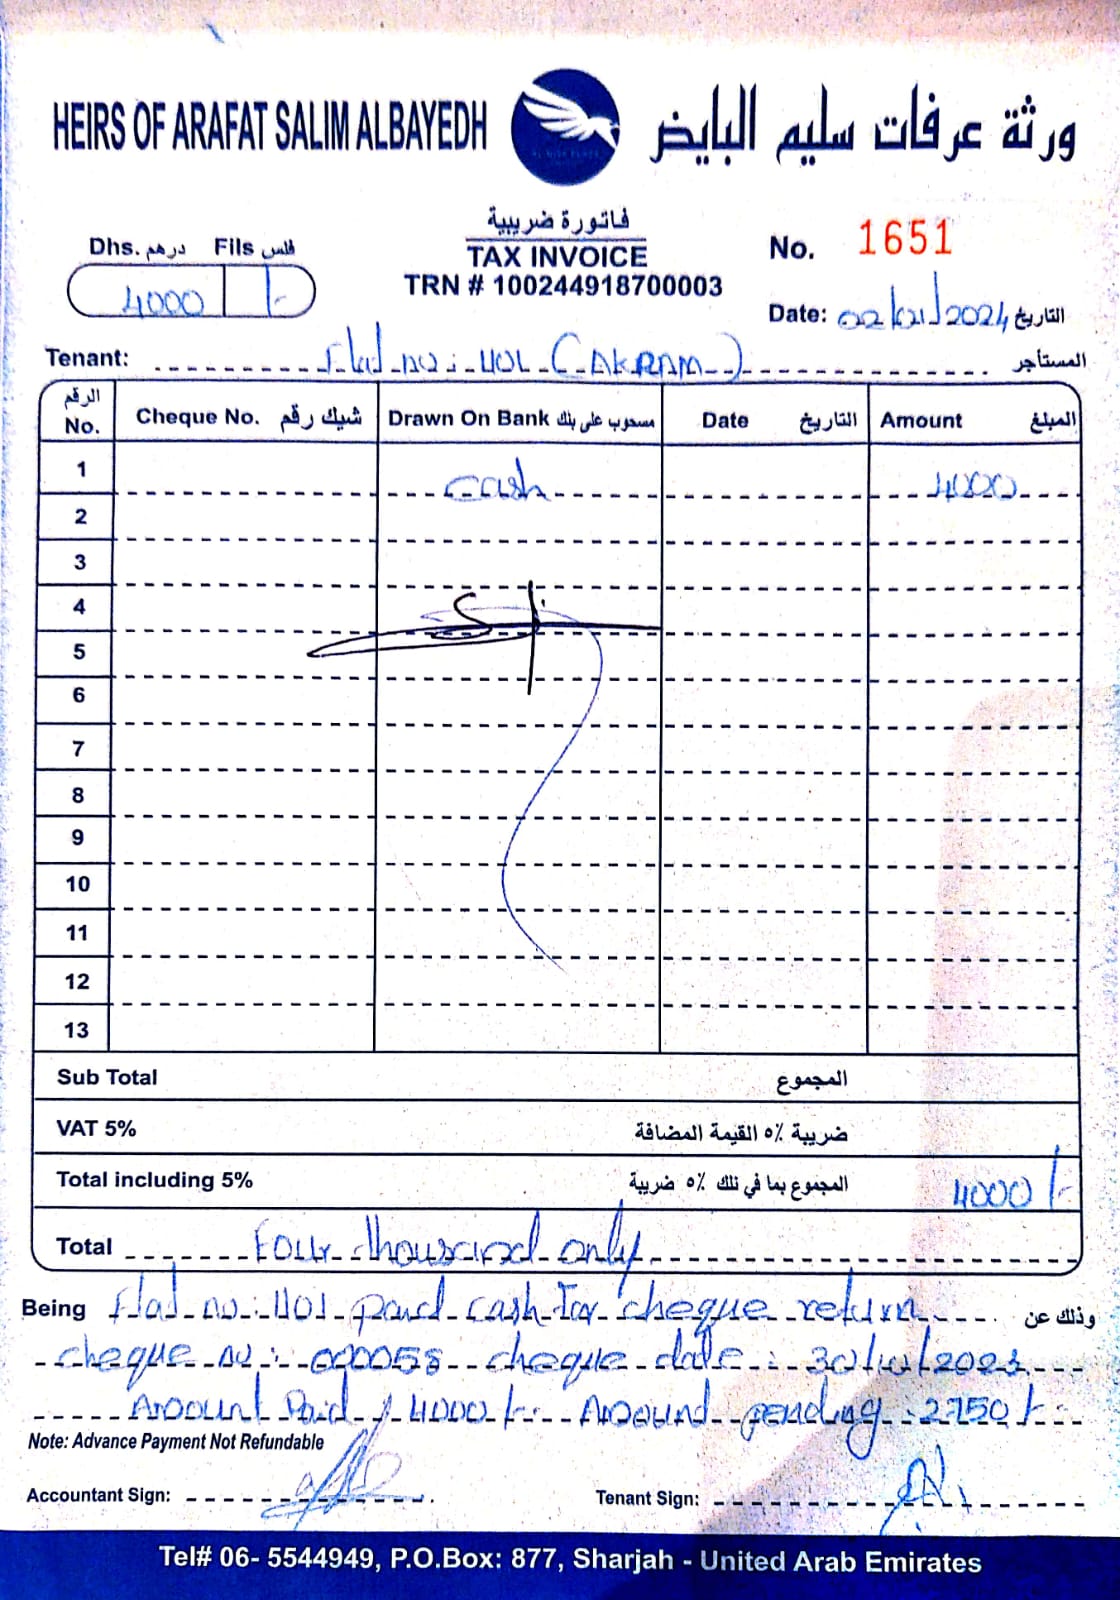 HEIRS OF ARAFAT SALIM ALBAYEDH
ورثة عرفات سليم البايض
Dhs. درهم Fils فلس
4000 /-
فاتورة ضريبية
TAX INVOICE
TRN # 100244918700003
No. 1651
Date: 02/01/2024 التاريخ
Tenant: Flat no: 1101 (AKRAM) المستأجر
الرقم No. Cheque No. شيك رقم Drawn On Bank مسحوب على بنك Date التاريخ Amount المبلغ
1 Cash 4000
2
3
4
5
6
7
8
9
10
11
12
13
Sub Total المجموع
VAT 5% ضريبة ٥٪ القيمة المضافة
Total including 5% المجموع بما في تلك ٥٪ ضريبة 4000/-
Total Four thousand only
Being Flat no: 1101 paid cash for cheque return وذلك عن
cheque no: 000058 cheque date: 30/10/2023
Amount Paid / 4000/- Amound pending: 2750/-
Note: Advance Payment Not Refundable
Accountant Sign:
Tenant Sign:
Tel# 06- 5544949, P.O.Box: 877, Sharjah - United Arab Emirates